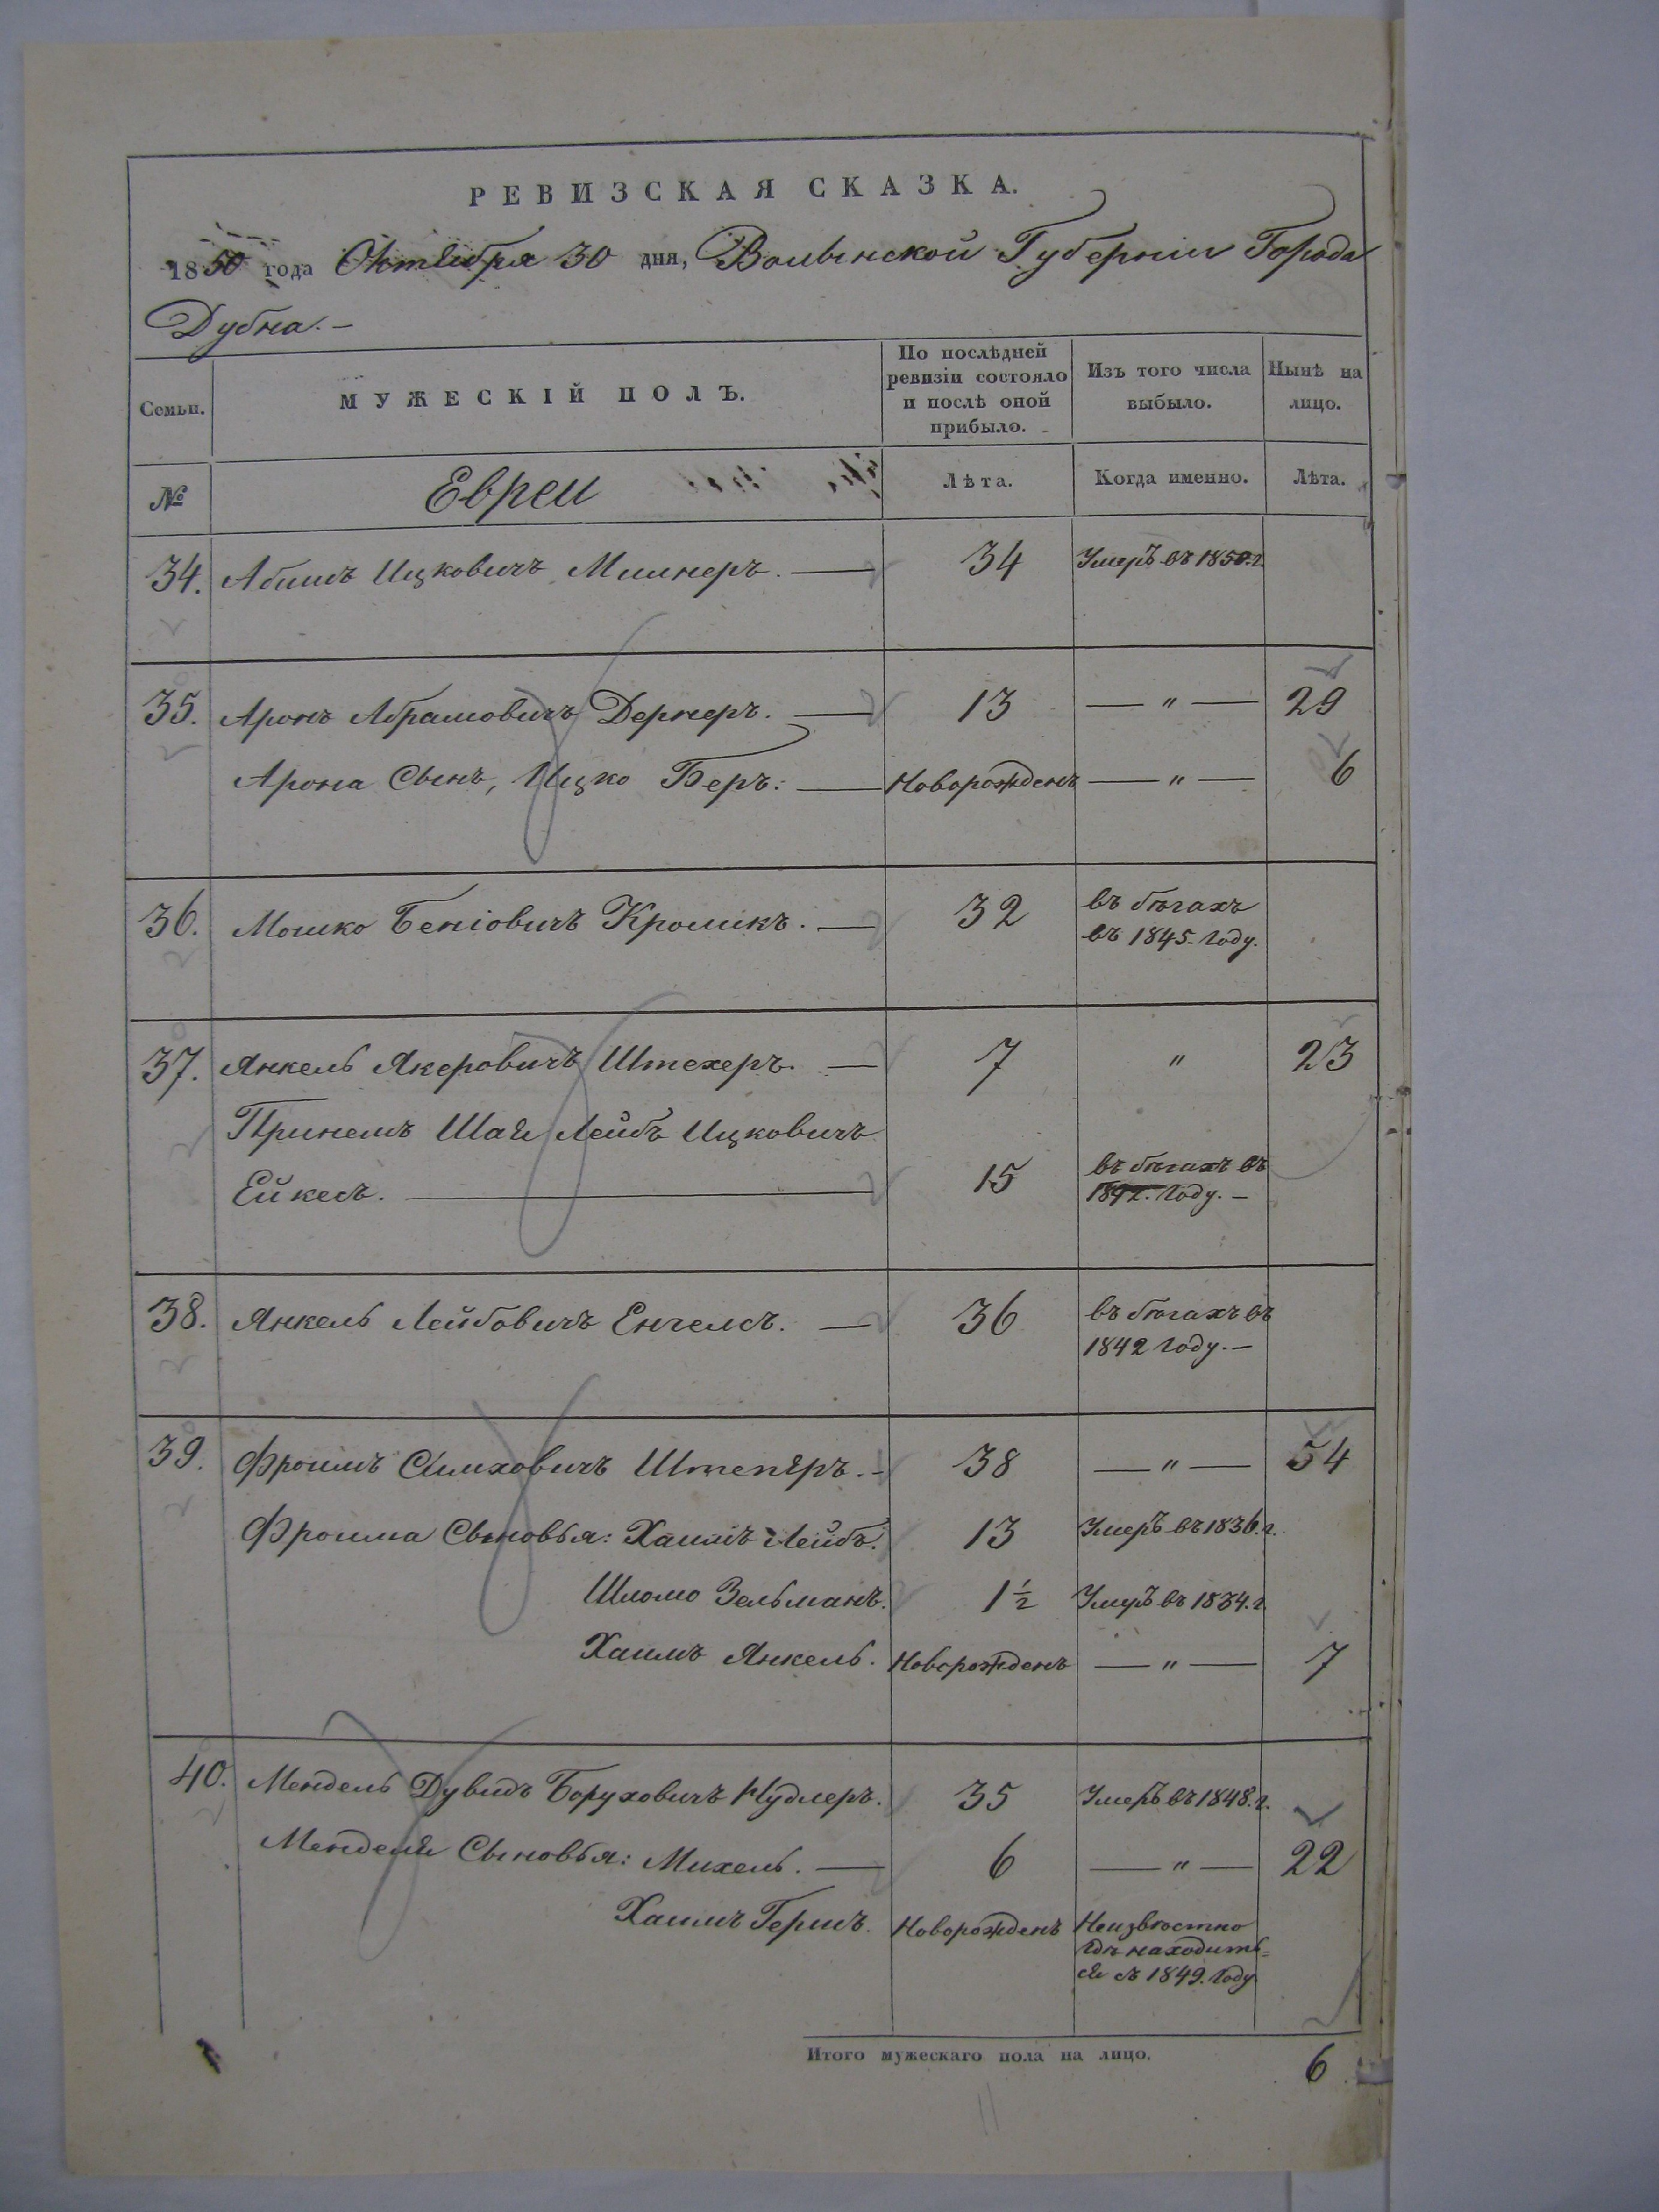 РЕВИЗСКАЯ СКАЗКА.
1850 года Октября 30 дня, Волынской Губерніи Города
Дубна.–
Семьи.
МУЖЕСКІЙ ПОЛЪ.
По послѣдней ревизіи состояло и послѣ оной прибыло.
Изъ того числа выбыло.
Нынѣ на лицо.
№
Евреи
Лѣта.
Когда именно.
Лѣта.
34. Абишъ Ицковичъ Милнеръ. — 34 Умеръ въ 1850. г.
35. Аронъ Абрамовичъ Дернеръ. — 13 — " — 29
Арона Сынъ, Ицко Беръ: — Новорожденъ — " — 6
36. Мошко Беніовичъ Кроликъ. — 32 въ бѣгахъ
въ 1845. году.
37. Янкель Якеровичъ Штехеръ. — 7 " 23
Принемъ Шая Лейбъ Ицковичъ
Ейкесъ. — 15 въ бѣгахъ въ
году. –
38. Янкель Лейбовичъ Енгелсъ. — 36 въ бѣгахъ въ
1842 году. –
39. Фроимъ Симховичъ Штепяръ. – 38 — " — 54
Фроима Сыновья: Хаимъ Лейбъ. 13 Умеръ въ 1836. г.
Шломо Зельманъ. 1½ Умеръ въ 1834. г.
Хаимъ Янкель. Новорожденъ — " — 7
40. Мендель Дувидъ Боруховичъ Нудлеръ. 35 Умеръ въ 1848. г.
Менделя Сыновья: Михель. — 6 — " — 22
Хаимъ Гершъ. Новорожденъ Неизвѣстно
гдѣ находить=
ся съ 1849. году
Итого мужескаго пола на лицо. 6